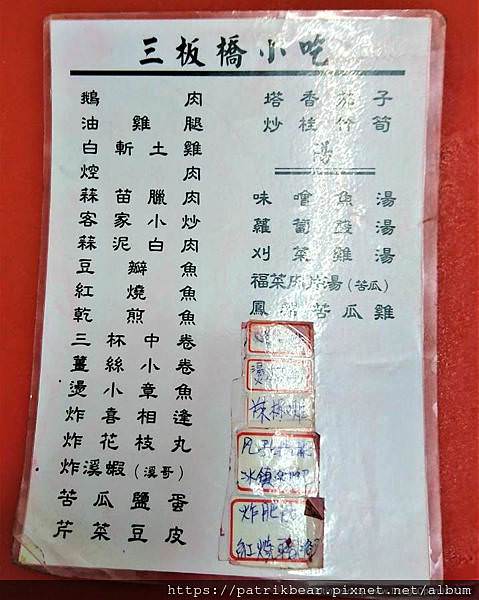 三板橋小吃
鵝肉
油雞腿
白斬土雞
焢肉
蒜苗臘肉
客家小炒
蒜泥白肉
豆瓣魚
紅燒魚
乾煎魚
三杯中卷
薑絲小卷
燙小章魚
炸喜相逢
炸花枝丸
炸溪蝦(溪哥)
苦瓜鹽蛋
芹菜豆皮
塔香茄子
炒桂竹筍
湯
味噌魚湯
蘿蔔湯
刈菜雞湯
福菜肉片湯(苦瓜)
鳳梨苦瓜雞
炸肥
紅燒
https://patrikbear.pixnet.net/album